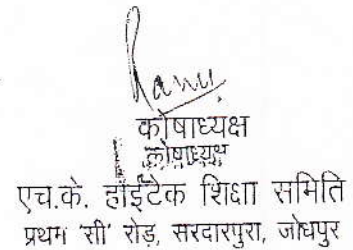 कोषाध्यक्ष
कोषाध्यक्ष
एच.के. हाईटेक शिक्षा समिति
प्रथम 'सी' रोड़, सरदारपुरा, जोधपुर